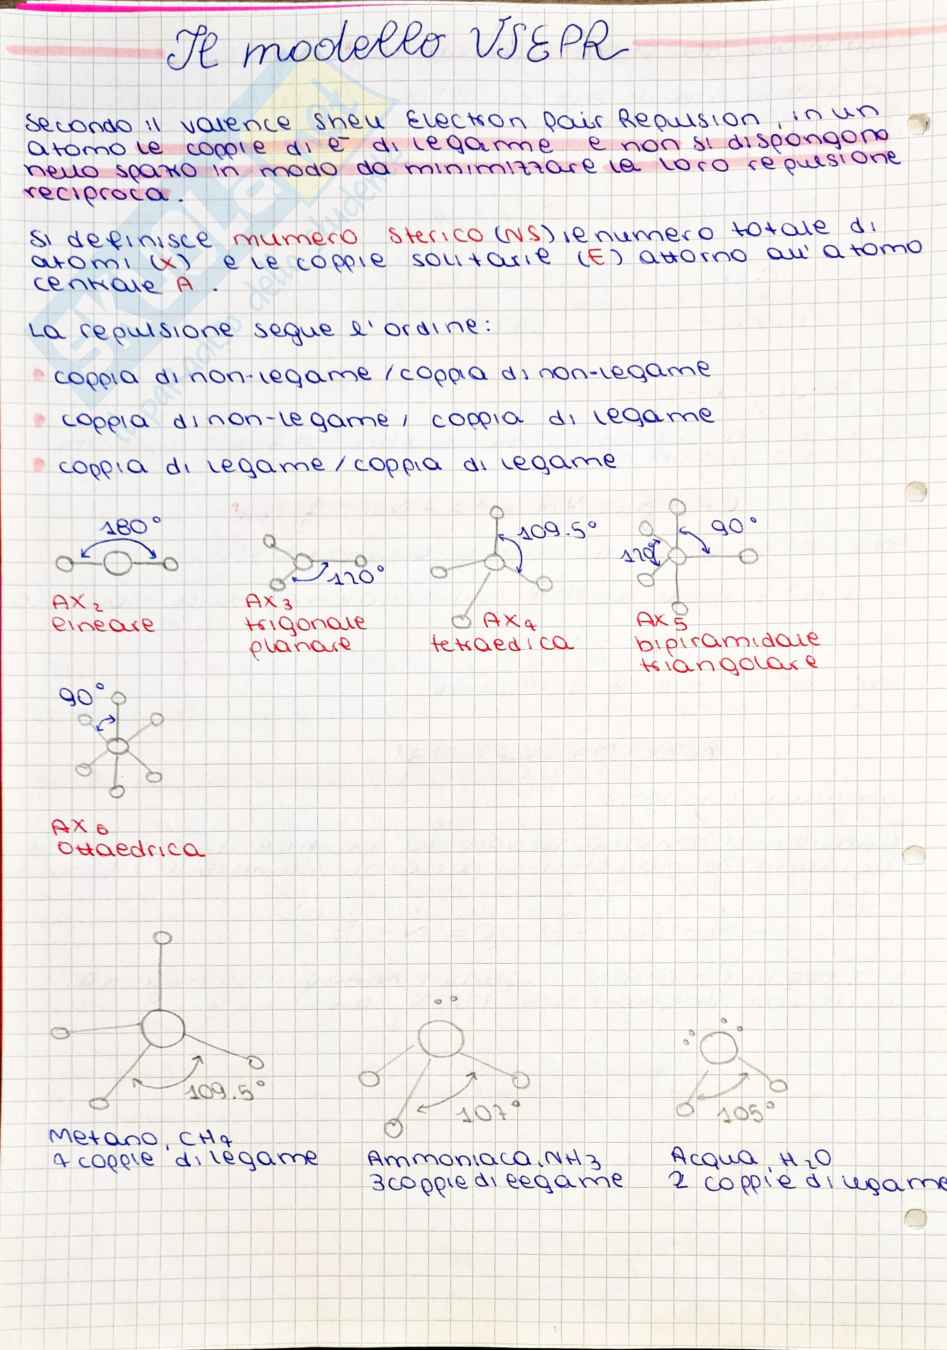 Il modello VSEPR
Secondo il valence shell Electron pair Repulsion, in un
atomo le coppie di e⁻ di legame e non si dispongono
nello spazio in modo da minimizzare la loro repulsione
reciproca.
Si definisce numero sterico (NS) il numero totale di
atomi (X) e le coppie solitarie (E) attorno all'atomo
centrale A.
La repulsione segue l'ordine:
coppia di non-legame / coppia di non-legame
coppia di non-legame / coppia di legame
coppia di legame / coppia di legame
180°
120°
109.5°
90°
120°
AX₂
lineare
AX₃
trigonale
planare
AX₄
tetraedica
AX₅
bipiramidale
triangolare
90°
AX₆
ottaedrica
109.5°
107°
105°
Metano, CH₄
4 coppie di legame
Ammoniaca, NH₃
3 coppie di legame
Acqua, H₂O
2 coppie di legame